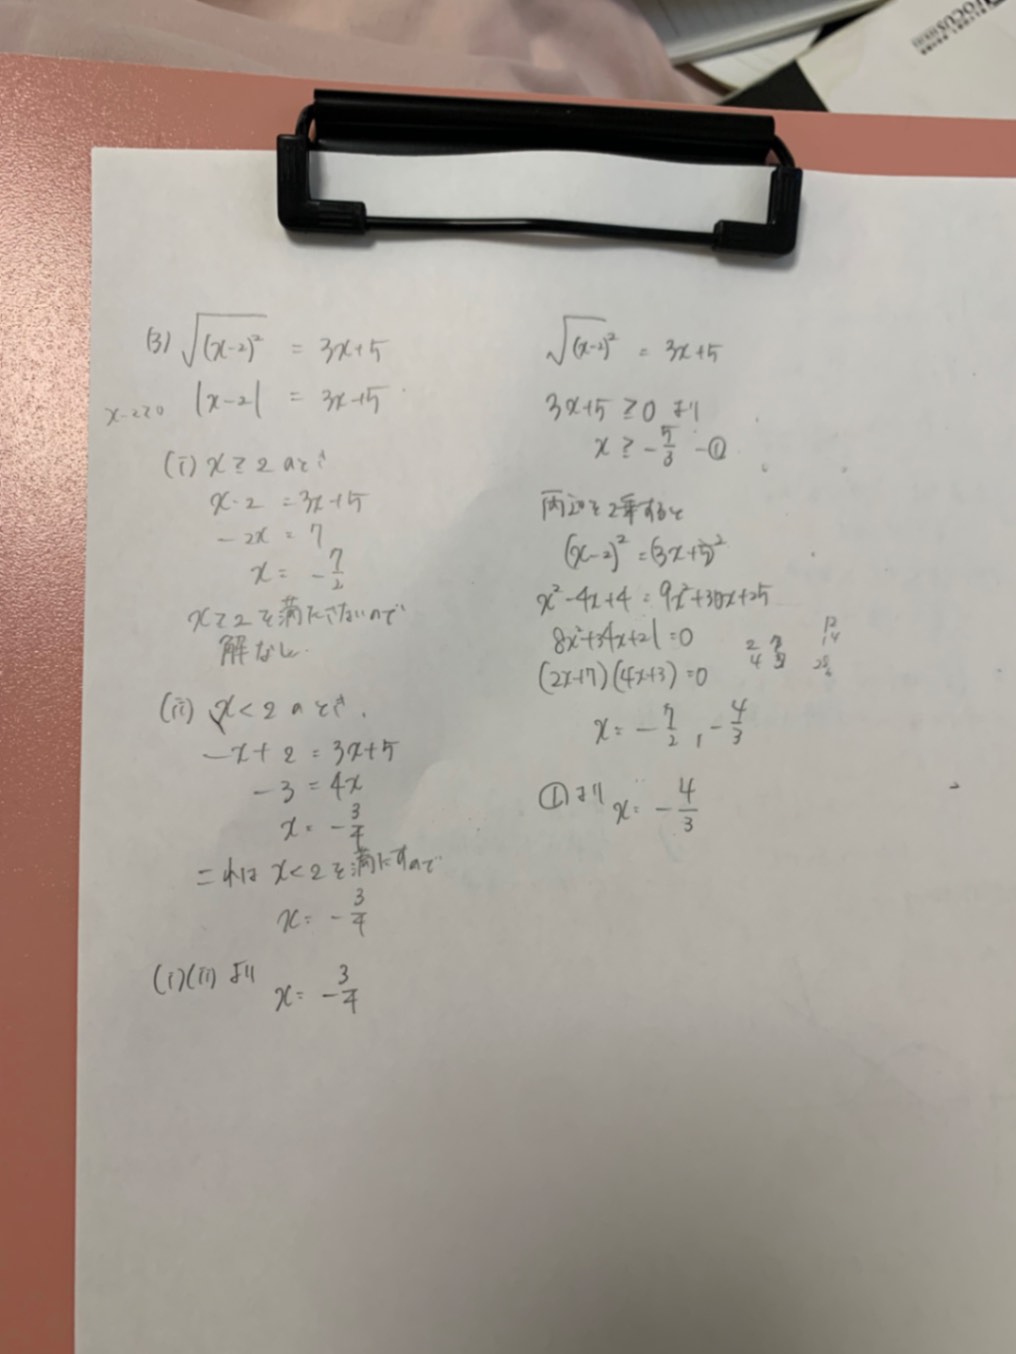 (3) √(x-2)² = 3x+5
x-2≥0 |x-2| = 3x+5
(i) x≥2のとき
x-2 = 3x+5
-2x = 7
x = -7/2
x≥2を満たさないので
解なし.
(ii) x<2のとき.
-x+2 = 3x+5
-3 = 4x
x = -3/4
これは x<2を満たすので
x = -3/4
(i)(ii) より x = -3/4
√(x-2)² = 3x+5
3x+5≥0 より
x≥-5/3 -①
両辺を2乗すると
(x-2)² = (3x+5)²
x²-4x+4 = 9x²+30x+25
8x²+34x+21=0
(2x+7)(4x+3)=0
x = -7/2, -4/3
①より x = -4/3
FOCUS